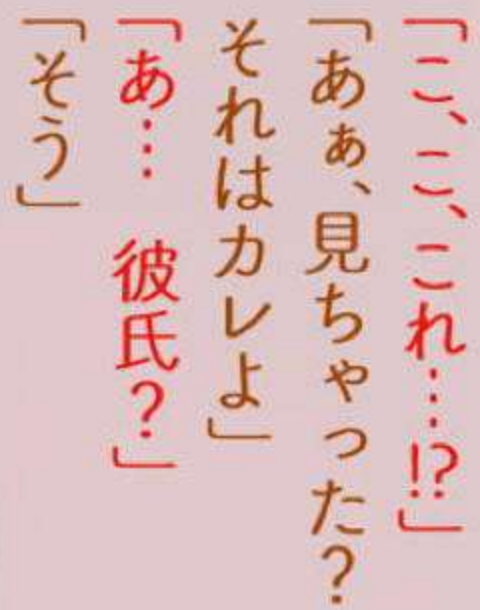 「こ、こ、これ…!?」
「あぁ、見ちゃった?
それはカレよ」
「あ… 彼氏?」
「そう」